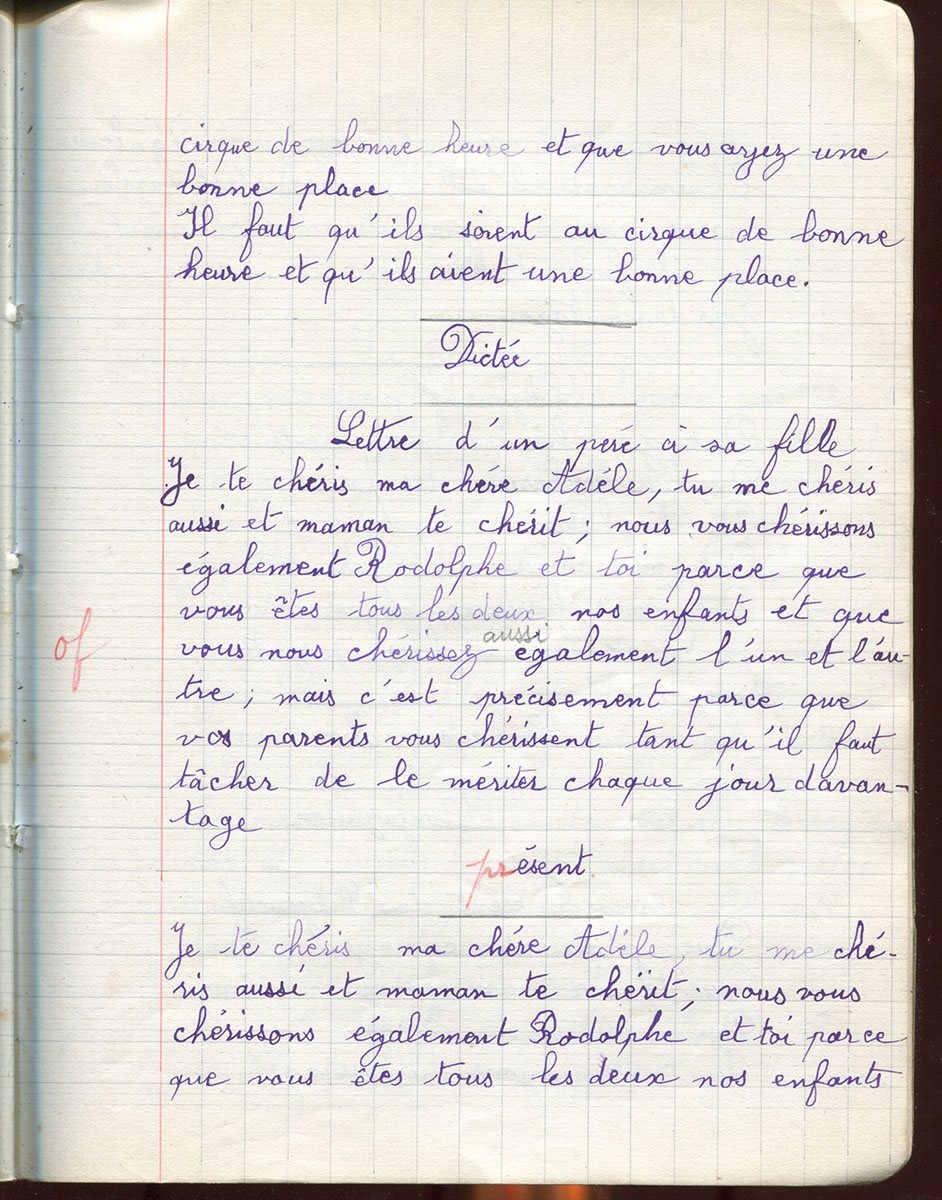 cirque de bonne heure et que vous ayez une
bonne place
Il faut qu'ils soient au cirque de bonne
heure et qu'ils aient une bonne place.
Dictée
Lettre d'un peré à sa fille
Je te chéris ma chére Adéle, tu me chéris
aussi et maman te cherit ; nous vous chérissons
également Rodolphe et toi parce que
vous êtes tous les deux nos enfants et que
aussi
vous nous chérissez également l'un et l'au-
of
tre ; mais c'est précisement parce que
vos parents vous chérissent tant qu'il faut
tâcher de le mériter chaque jour davan-
tage
présent
Je te chéris ma chére Adéle, tu me ché-
ris aussi et maman te chérit ; nous vous
chérissons également Rodolphe et toi parce
que vous êtes tous les deux nos enfants